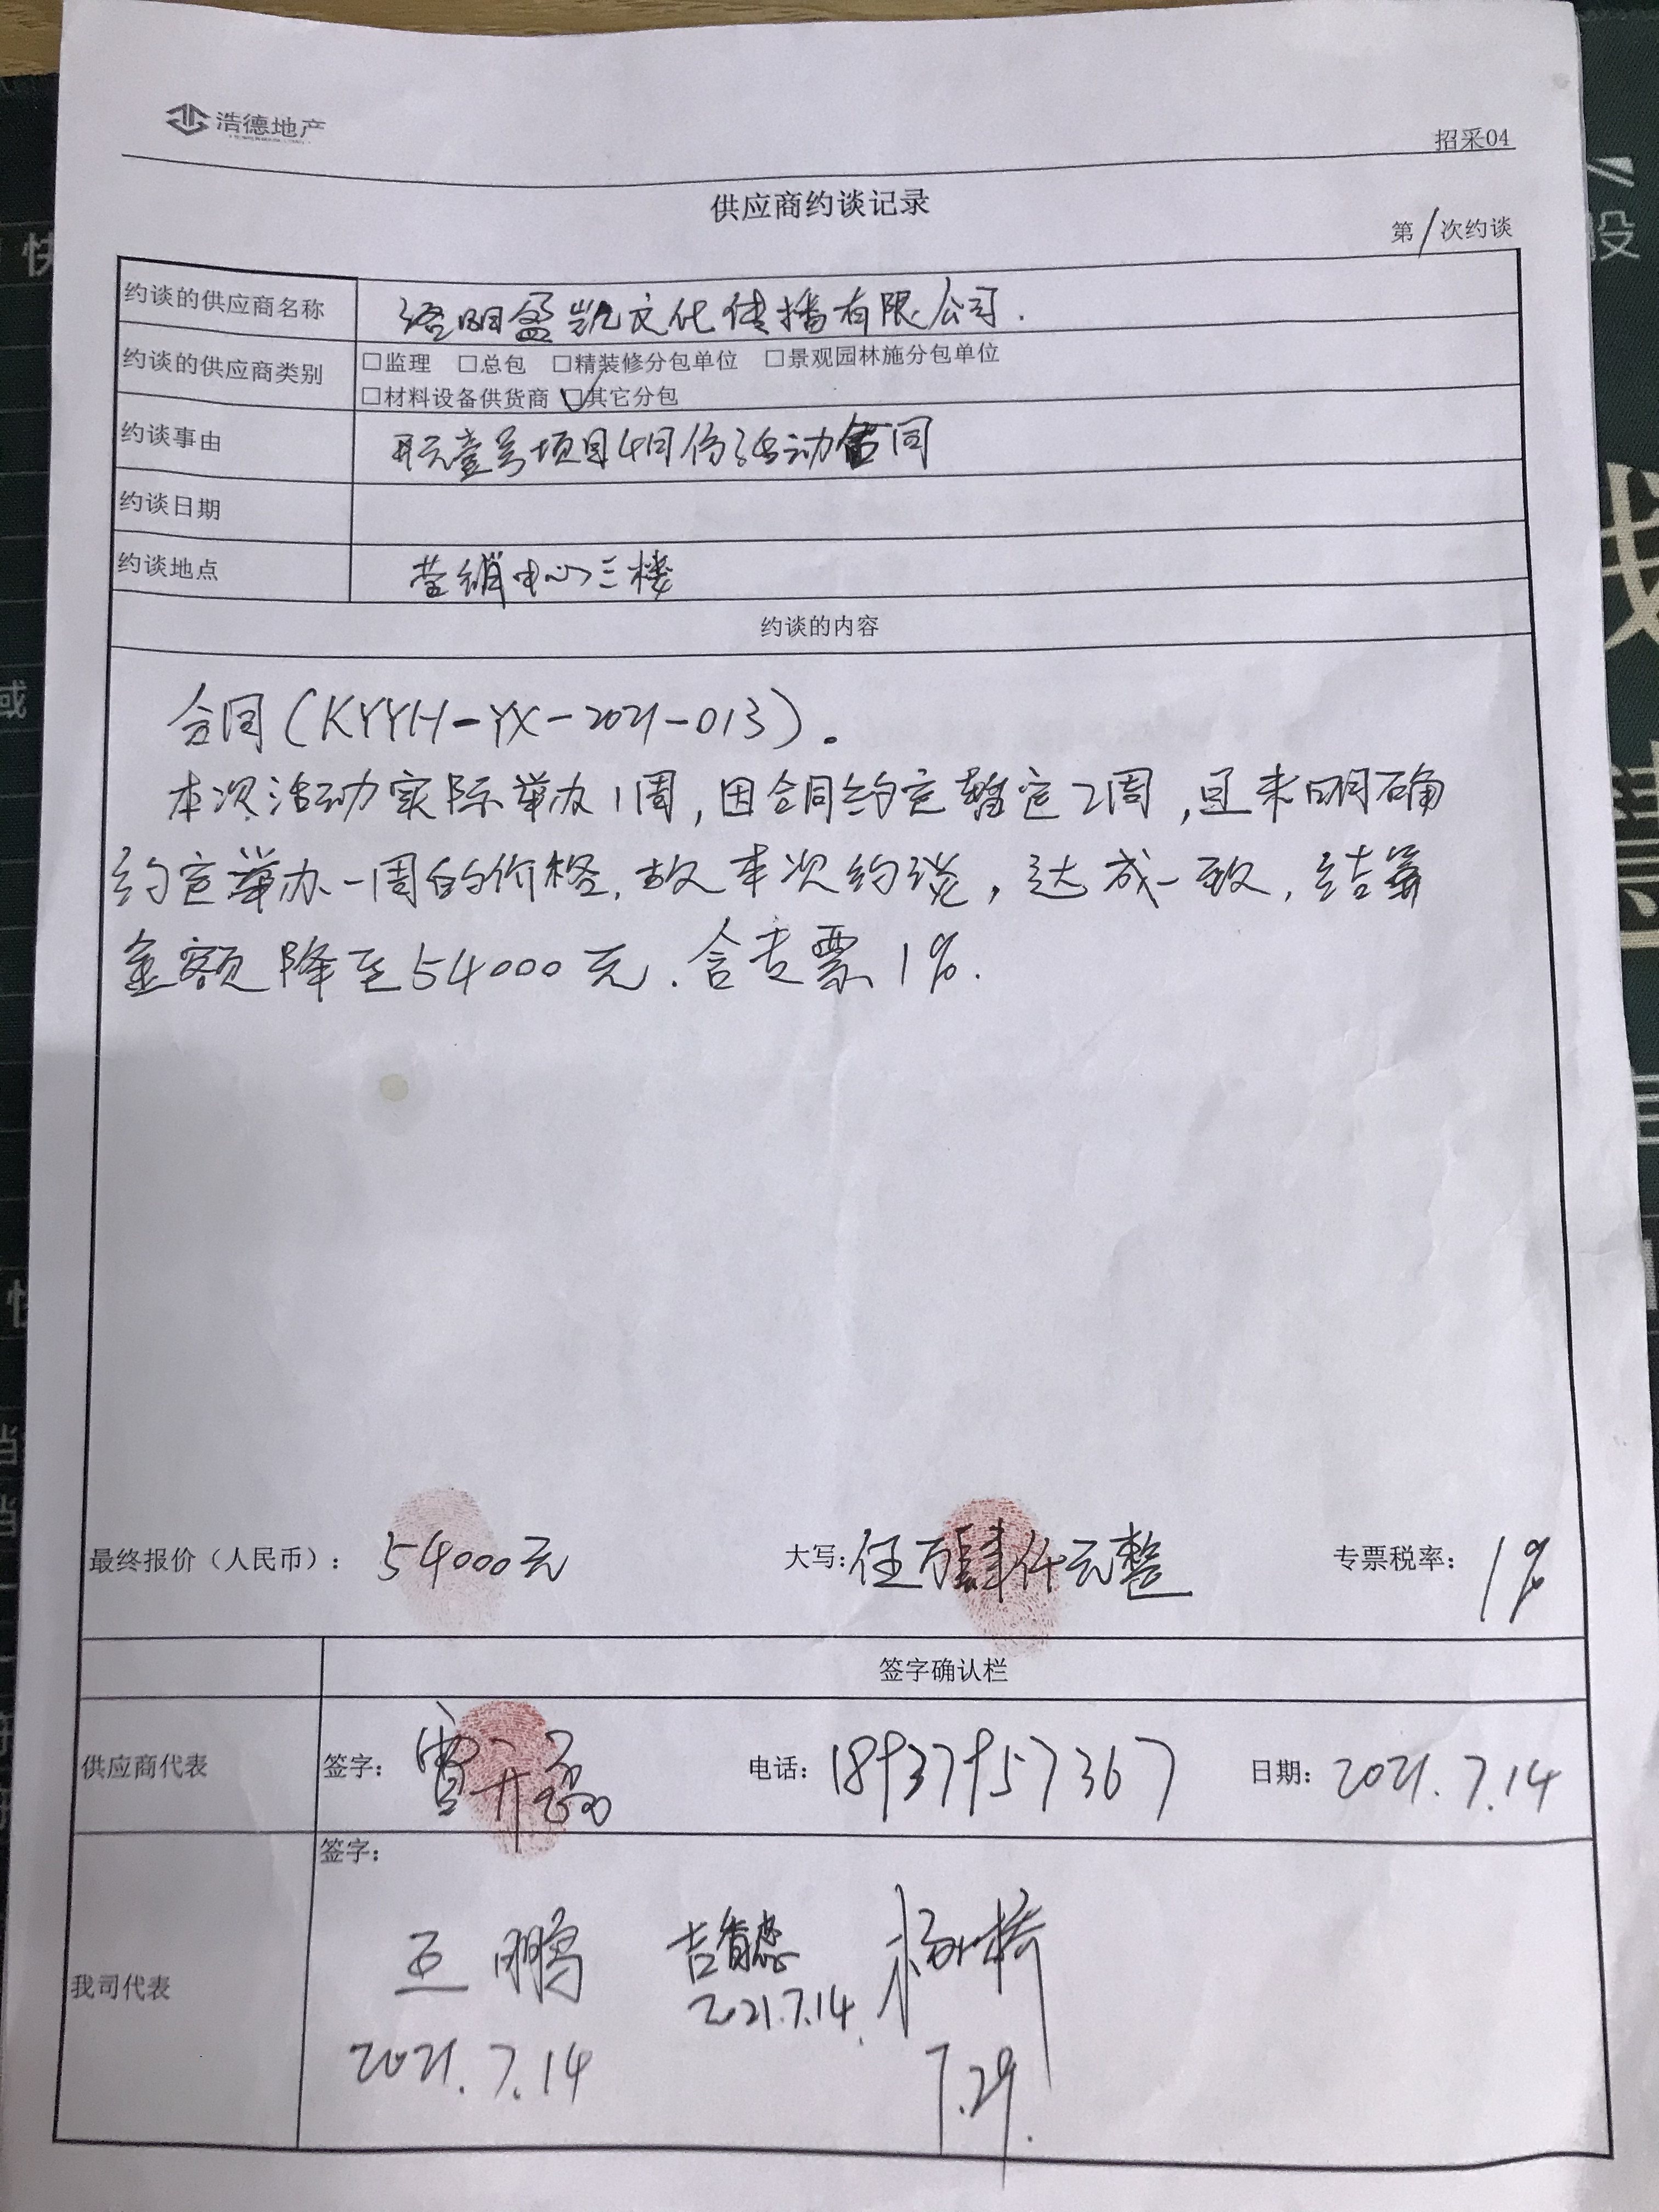 浩德地产
招采04
供应商约谈记录
第1次约谈
约谈的供应商名称 洛阳盈凯文化传播有限公司.
约谈的供应商类别 □监理 □总包 □精装修分包单位 □景观园林施分包单位
□材料设备供货商 ☑其它分包
约谈事由 开元壹号项目4月份活动合同
约谈日期
约谈地点 营销中心三楼
约谈的内容
合同(KYYH-YX-2021-013)。
本次活动实际举办1周,因合同约定暂定2周,且未明确
约定举办一周的价格,故本次约谈,达成一致,结算
金额降至54000元.含专票1%.
最终报价（人民币）: 54000元 大写:伍万肆仟元整 专票税率: 1%
签字确认栏
供应商代表 签字: 电话: 18937957367 日期: 2021.7.14
签字:
我司代表 王鹏 杨桥
2021.7.14 2021.7.14 7.29.